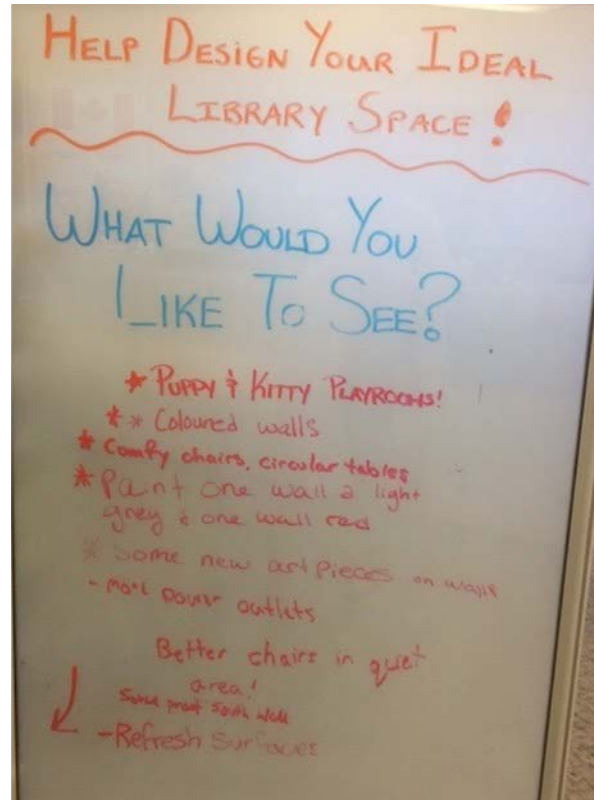 HELP DESIGN YOUR IDEAL
LIBRARY SPACE!
WHAT WOULD YOU
LIKE TO SEE?
* PUPPY & KITTY PLAYROOMS!
* * Coloured walls
* Comfy chairs, circular tables
* Paint one wall a light
grey & one wall red
* Some new art pieces on walls
- more power outlets
Better chairs in quiet
area!
Sound proof South Wall
- Refresh surfaces